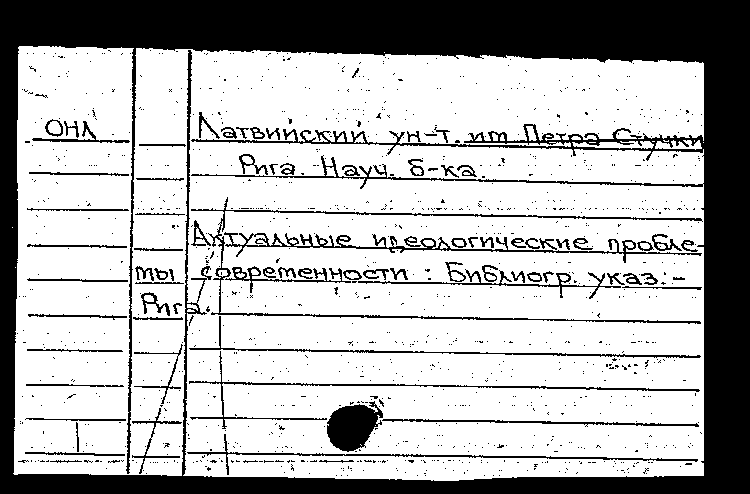 ОНЛ
Латвийский ун-т. им Петра Стучки
Рига. Науч. б-ка.
Актуальные идеологические пробле-
мы современности : Библиогр. указ. -
Рига.